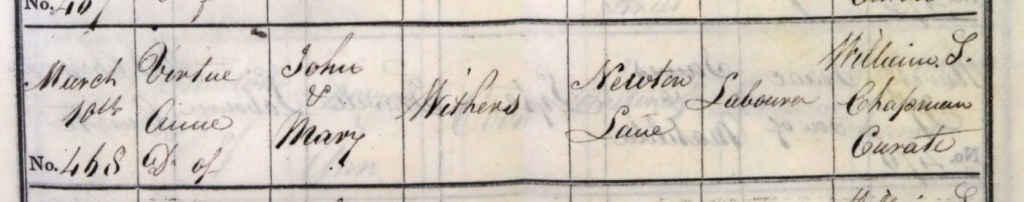 March
10th
No. 468
Virtue
Anne
D. of
John
&
Mary
Withers
Newton
Lane
Labourer
William S.
Chapman
Curate